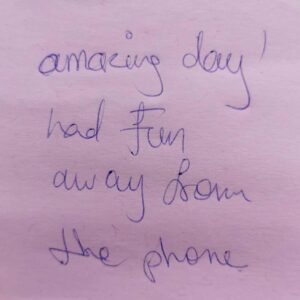 amazing day!
had Fun
away from
the phone